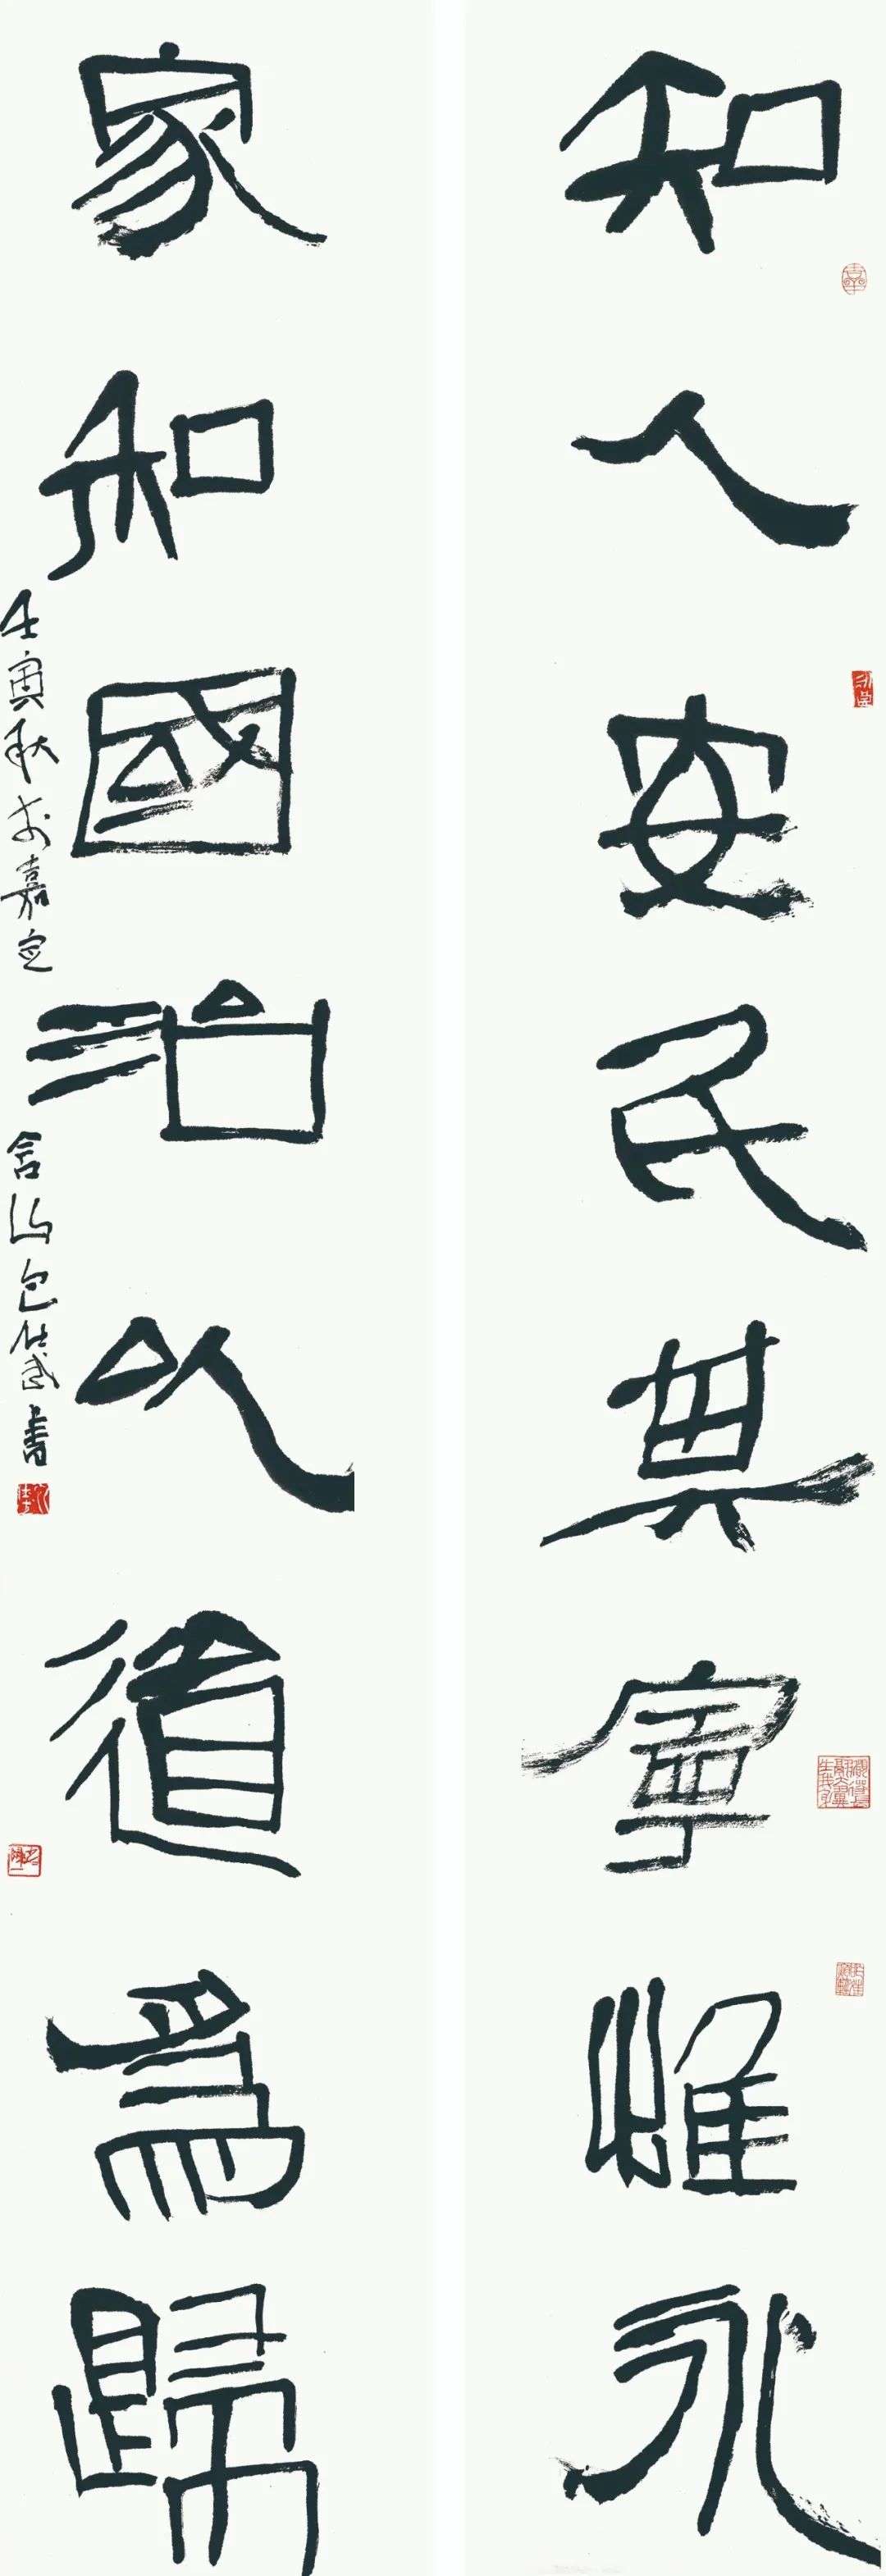 知人安民其寧惟永
家和國治以道為歸
壬寅秋於嘉定 含山包仕武書